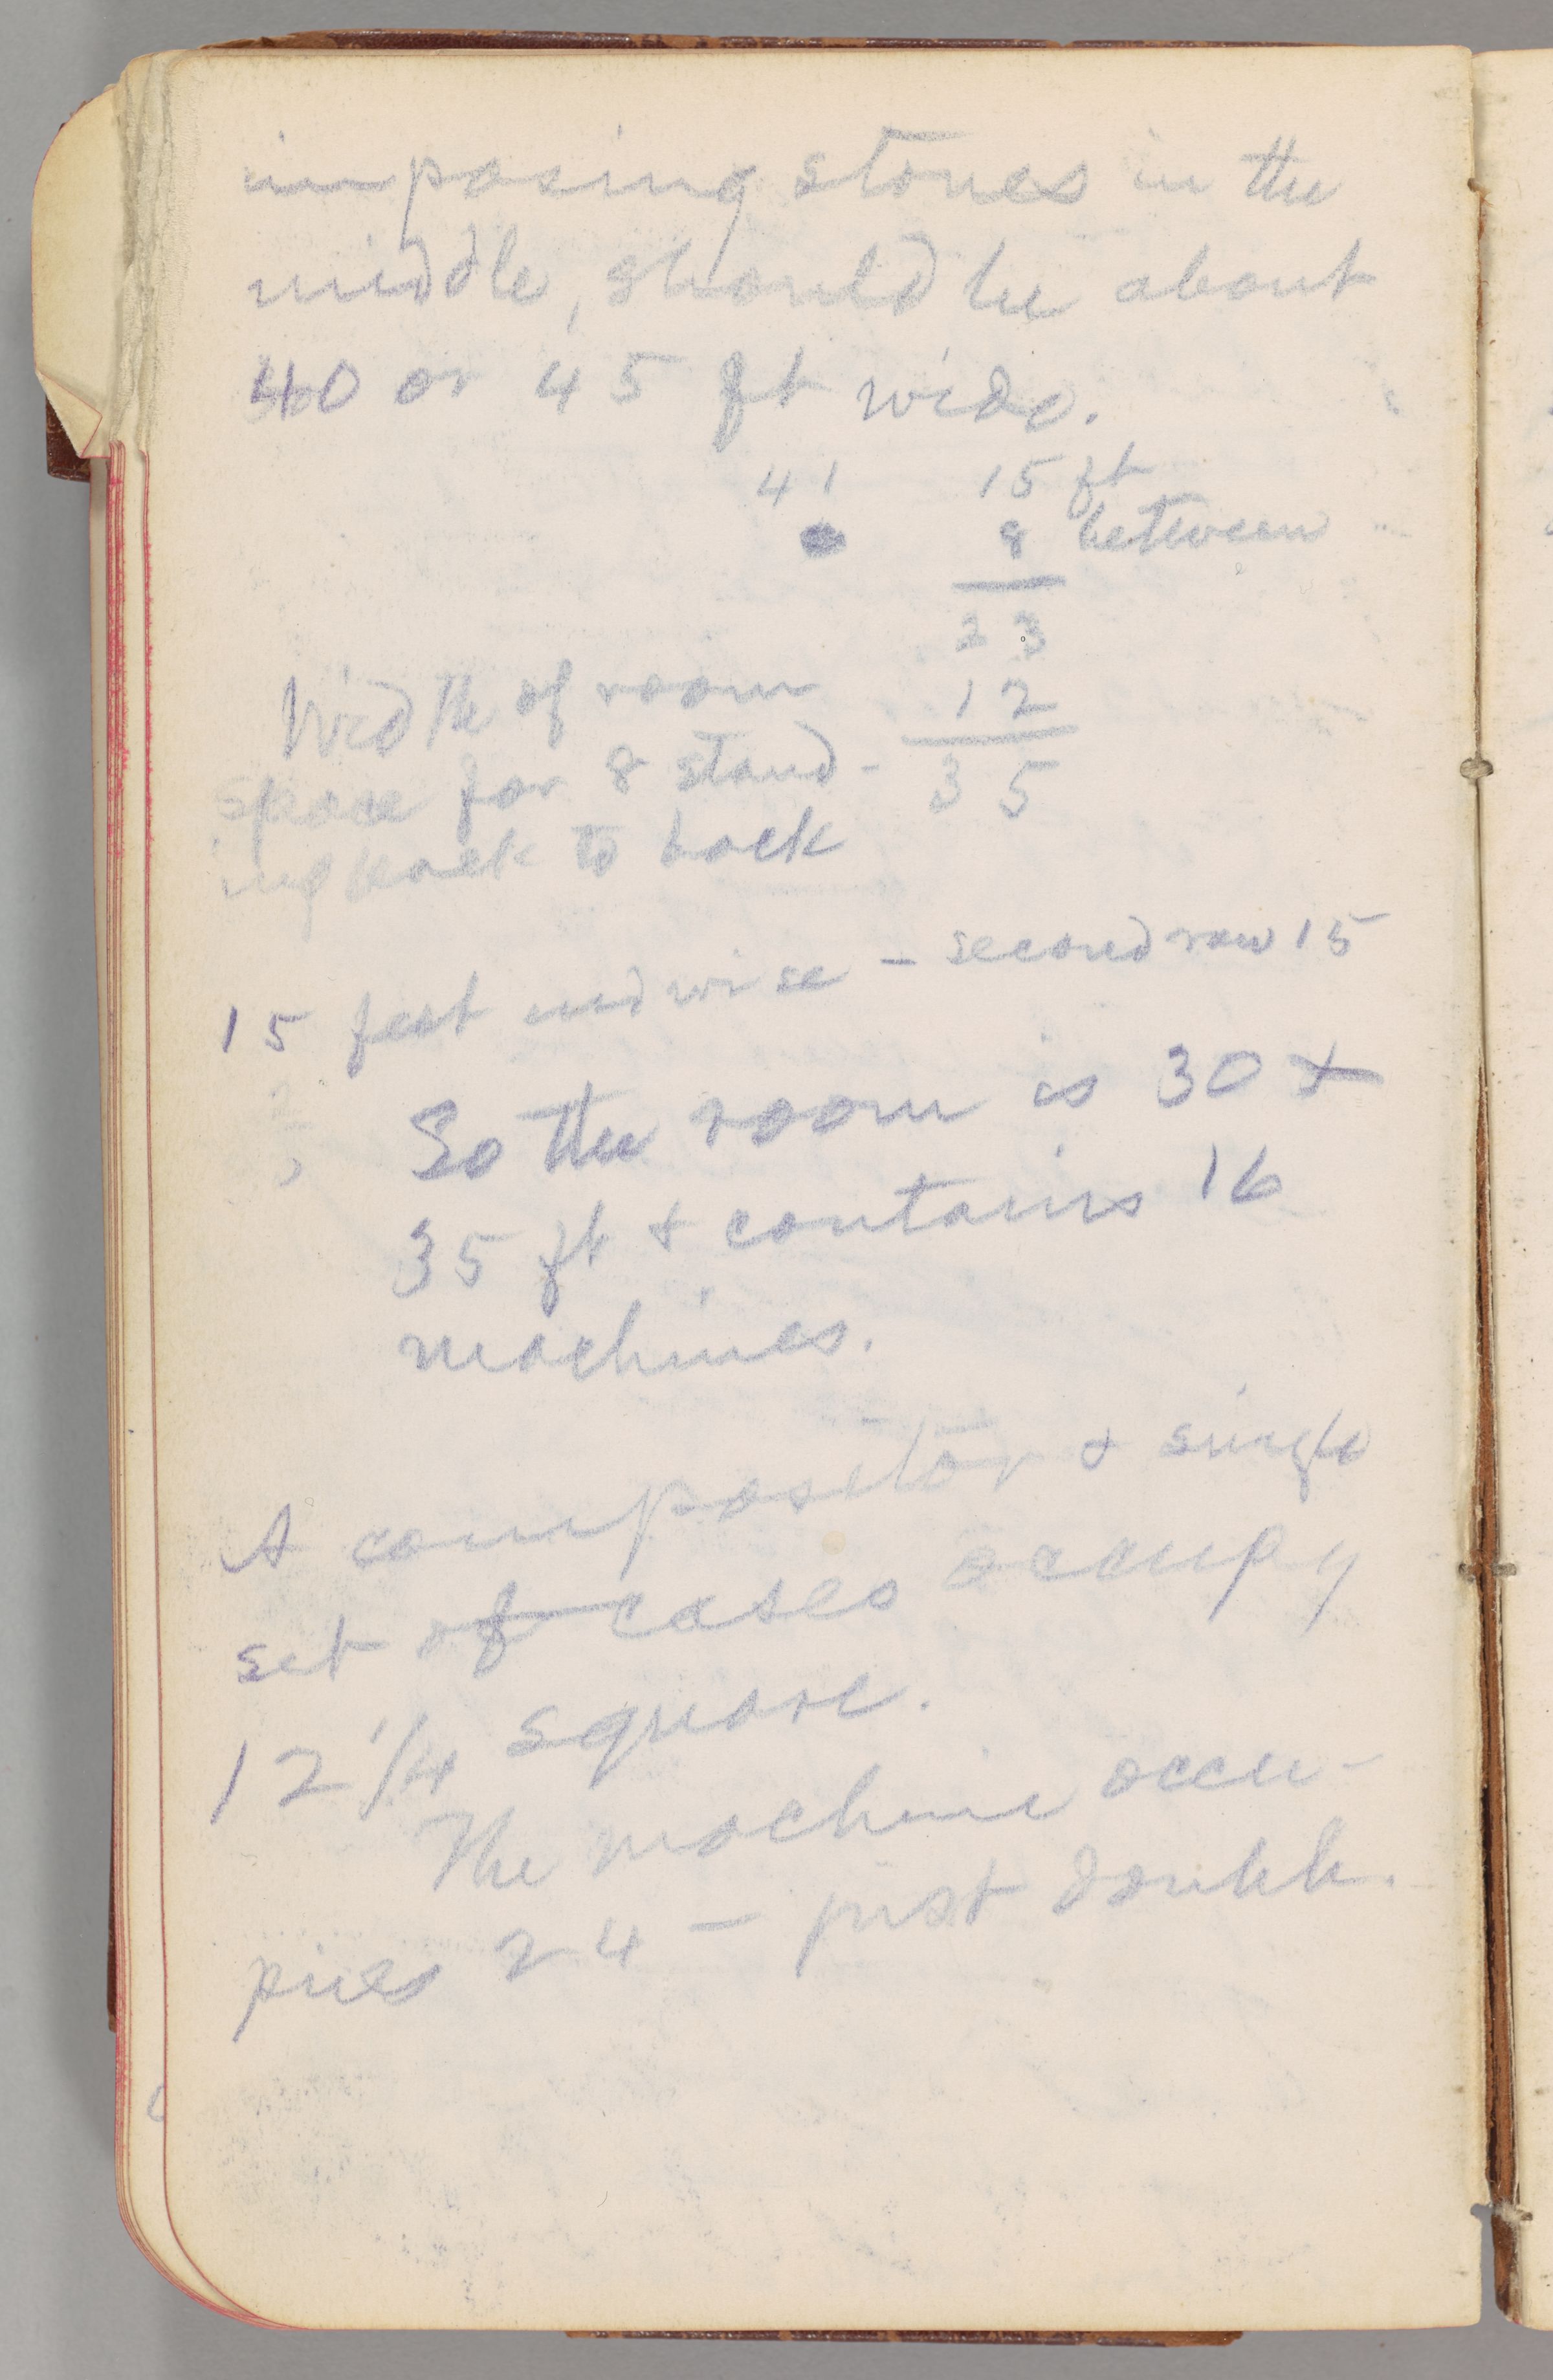 imposing stones in the
middle, should be about
40 or 45 ft wide.
41 15 ft
8 between
23
12
35
Width of room
space for 8 stand-
ing back to back
15 feet endwise — second row 15
So the room is 30 x
35 ft & contains 16
machines.
A compositor & single
set of cases occupy
12 1/4 square.
The machine occu-
pies 24 — just double.